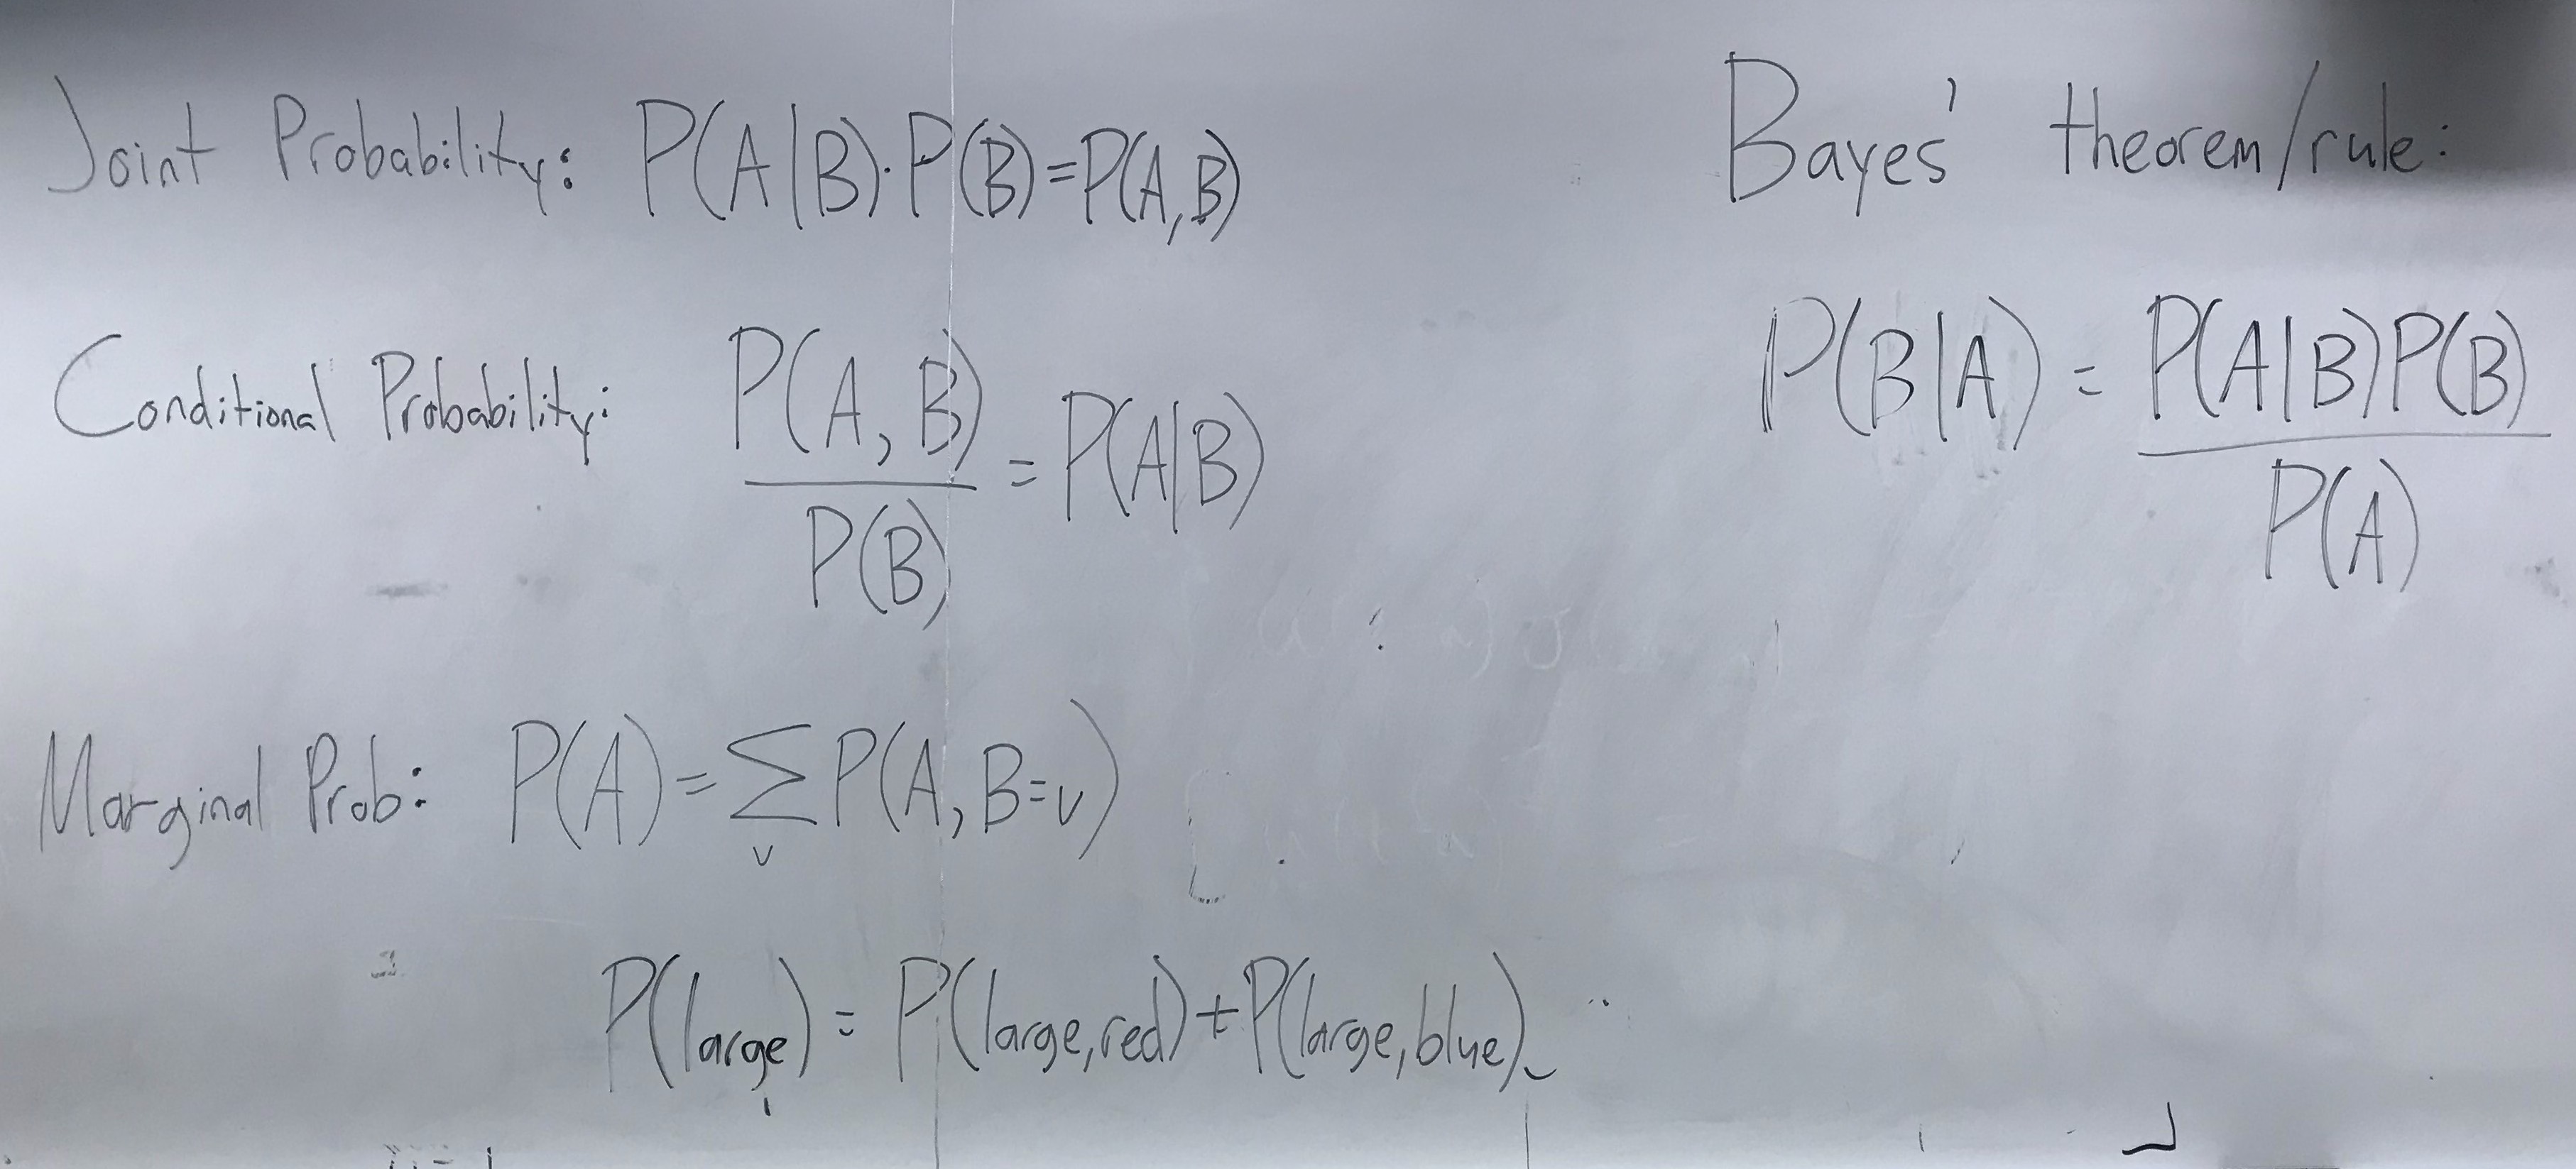 Joint Probability: P(A|B)·P(B)=P(A,B)
Conditional Probability: P(A,B)/P(B) = P(A|B)
Marginal Prob: P(A)=∑_v P(A,B=v)
P(large) = P(large,red)+P(large,blue)
Bayes' theorem/rule:
P(B|A) = P(A|B)P(B)/P(A)